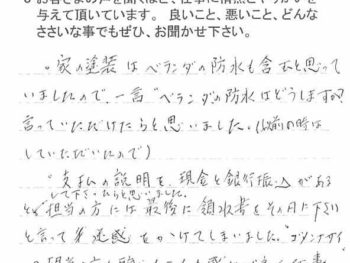 お客さまの声を聞くほど、仕事に情熱とやりがいを
与えて頂いています。 良いこと、悪いこと、どんな
ささいな事でもぜひ、お聞かせ下さい。
。家の塗装はベランダの防水も含むと思って
いましたので、一言"ベランダの防水はどうしますか
言っていただけたらと思いました。(以前の時は
していただいたので)
。支払の説明を、現金と銀行振込がある
として下さったらと思いました。
担当の方には最後に領収書をその月に下さい
と言って迷惑をかけてしまいました。"ゴメンナサイ